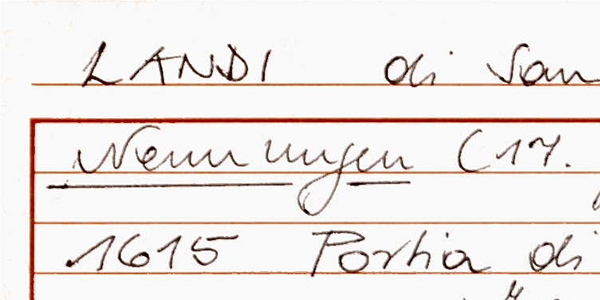 LANDI di San
Nennungen (17.
1615 Portia di